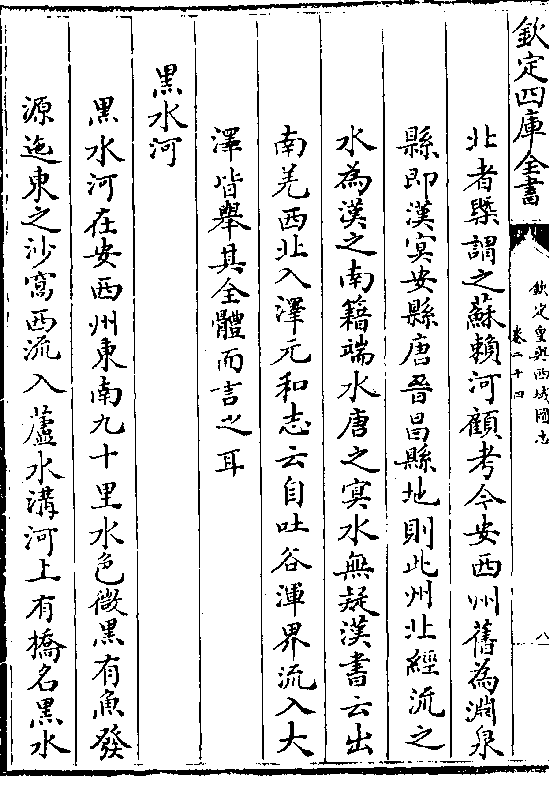 欽定四庫全書
欽定皇輿西域圖志
卷二十四
八
北者槩謂之蘇賴河顧考今安西州舊為淵泉
縣即漢冥安縣唐晉昌縣地則此州北經流之
水為漢之南籍端水唐之冥水無疑漢書云出
南羌西北入澤元和志云自吐谷渾界流入大
澤皆舉其全體而言之耳
黑水河
黑水河在安西州東南九十里水色微黑有魚發
源迤東之沙窩西流入蘆水溝河上有橋名黑水